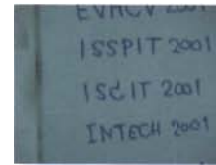 2001
ISSPIT 2001
ISCIT 2001
INTECH 2001